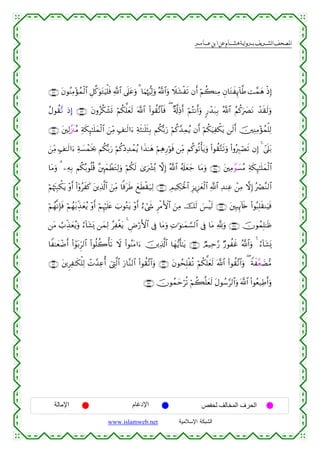 المصحف الشريف برواية هشام عن ابن عامر
إِذْ هَمَّت طَّآئِفَتَانِ مِنكُمْ أَن تَفْشَلَا وَٱللَّهُ وَلِيُّهُمَا ۗ وَعَلَى ٱللَّهِ فَلْيَتَوَكَّلِ ٱلْمُؤْمِنُونَ
وَلَقَدْ نَصَرَكُمُ ٱللَّهُ بِبَدْرٍ وَأَنتُمْ أَذِلَّةٌ ۖ فَٱتَّقُوا۟ ٱللَّهَ لَعَلَّكُمْ تَشْكُرُونَ إِذ تَّقُولُ
لِلْمُؤْمِنِينَ أَلَن يَكْفِيَكُمْ أَن يُمِدَّكُمْ رَبُّكُم بِثَلَٰثَةِ ءَالَٰفٍ مِّنَ ٱلْمَلَٰٓئِكَةِ مُنَزَّلِينَ
بَلَىٰٓ ۚ إِن تَصْبِرُوا۟ وَتَتَّقُوا۟ وَيَأْتُوكُم مِّن فَوْرِهِمْ هَٰذَا يُمْدِدْكُمْ رَبُّكُم بِخَمْسَةِ ءَالَٰفٍ مِّنَ
ٱلْمَلَٰٓئِكَةِ مُسَوَّمِينَ وَمَا جَعَلَهُ ٱللَّهُ إِلَّا بُشْرَىٰ لَكُمْ وَلِتَطْمَئِنَّ قُلُوبُكُم بِهِۦ ۗ وَمَا
ٱلنَّصْرُ إِلَّا مِنْ عِندِ ٱللَّهِ ٱلْعَزِيزِ ٱلْحَكِيمِ لِيَقْطَعَ طَرَفًا مِّنَ ٱلَّذِينَ كَفَرُوٓا۟ أَوْ يَكْبِتَهُمْ
فَيَنقَلِبُوا۟ خَآئِبِينَ لَيْسَ لَكَ مِنَ ٱلْأَمْرِ شَىْءٌ أَوْ يَتُوبَ عَلَيْهِمْ أَوْ يُعَذِّبَهُمْ فَإِنَّهُمْ
ظَٰلِمُونَ وَلِلَّهِ مَا فِى ٱلسَّمَٰوَٰتِ وَمَا فِى ٱلْأَرْضِ ۚ يَغْفِرُ لِمَن يَشَآءُ وَيُعَذِّبُ مَن
يَشَآءُ ۚ وَٱللَّهُ غَفُورٌ رَّحِيمٌ يَٰٓأَيُّهَا ٱلَّذِينَ ءَامَنُوا۟ لَا تَأْكُلُوا۟ ٱلرِّبَوٰٓا۟ أَضْعَٰفًا
مُّضَعَّفَةً ۖ وَٱتَّقُوا۟ ٱللَّهَ لَعَلَّكُمْ تُفْلِحُونَ وَٱتَّقُوا۟ ٱلنَّارَ ٱلَّتِىٓ أُعِدَّتْ لِلْكَٰفِرِينَ
وَأَطِيعُوا۟ ٱللَّهَ وَٱلرَّسُولَ لَعَلَّكُمْ تُرْحَمُونَ
الحرف المخالف لحفص الإدغام الإمالة
الشبكة الإسلامية www.islamweb.net